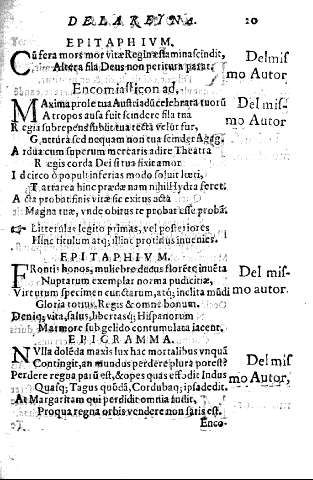 DE LA REINA. 20
EPITAPHIVM.
Cũ fera mors mor vitæ Reginæ stamina scindit,
Altera fila Deus non peritura parat.
Del mismo Autor
Encomiasticon ad,
MAxima prole tua Austriadũ celebrata tuorũ
Atropos ausa fuit scindere fila tua
Del mismo Autor.
Regia subrepens subiit tua tecta velut fur,
Guttura sed nequam non tua scindet Agag.
Ardua cum superum mercaris adire Theatra
Regis corda Dei si tua fixit amor
Idcirco ó populi inferias modo soluit lucti,
Tartarea hinc prædæ nam nihil Hydra feret.
Acta probat finis vitæ sic exitus acta
Magna tuæ, vnde obitus te probat esse probã.
☞ Litterulas legito primas, vel posteriores
Hinc titulum atq; illinc protinus inuenies.
EPITAPHIVM.
FRontis honos, muliebre decus florẽte iuuẽta
Nuptarum exemplar norma pudicitiæ,
Del mismo autor.
Virtutum specimen cunctarum, atq; inclita mũdi
Gloria totius, Regis & omne bonum.
Deniq; vita, salus, libertasq; Hispanorum
Marmore sub gelido contumulata iacent.
EPIGRAMMA.
NVlla dolẽda maxis lux hac mortalibus vnquã
Contingit, an mundus perdere plura potest?
Del mismo Autor,
Perdere regna parũ est, & opes quas effodit Indus
Quasq; Tagus quõdã, Cordubaq; ipsa dedit.
At Margaritam qui perdidit omnia fudit,
Pro qua regna orbis vendere non satis est.
Enco-